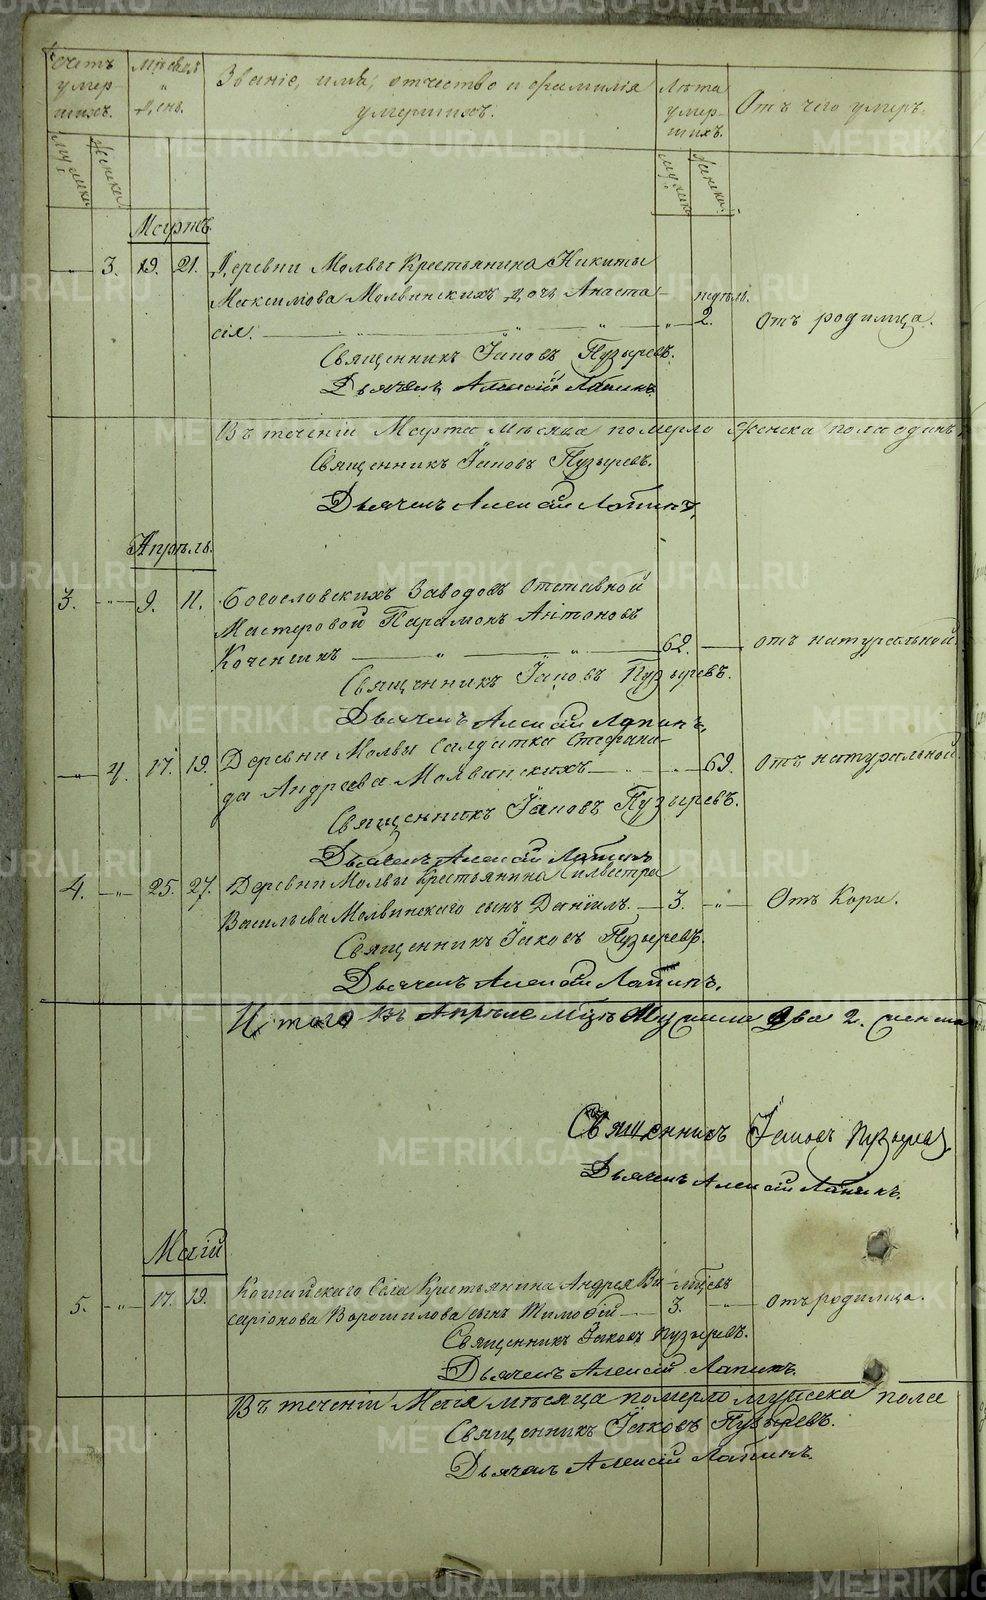 Счетъ умер- шихъ. Мѣсяцъ и День. Званіе, имя, отчество и фамилія умершихъ. Лѣта умер- шихъ. Отъ чего умеръ.
Мужска Женска Мужска Женска
Мартъ.
3. 19. 21. Деревни Молвы Крестьянина Никиты
Максимова Молвинскихъ дочь Анаста- недѣль.
сія. 2. Отъ родимца.
Священникъ Іаковъ Пузыревъ.
Дьячекъ Алексій Лапинъ
Въ теченіи Марта мѣсяца померло Женска пола одинъ
Священникъ Іаковъ Пузыревъ.
Дьячекъ Алексій Лапинъ,
Апрѣль.
3. 9. 11. Богословскихъ Заводовъ Отставной
Мастеровой Парамонъ Антоновъ
62. отъ натуральной.
Священникъ Іаковъ Пузыревъ.
Дьячекъ Алексій Лапинъ,
4. 17. 19. Деревни Молвы Салдатка Стефани-
да Андреева Молвинскихъ 69. Отъ натуральной.
Священникъ Іаковъ Пузыревъ.
Дьячекъ Алексій Лапинъ
4. 25. 27. Деревни Молвы Крестьянина Силвестра
Васильева Молвинскаго сынъ Даніилъ. 3. Отъ Кори.
Священникъ Іаковъ Пузыревъ.
Дьячекъ Алексій Лапинъ.
Итого въ Апрѣле мцѣ Мужска два 2. женска
Священникъ Іаковъ Пузыревъ
Дьячекъ Алексій Лапинъ.
Маій
5. 17. 19. Кошайскаго Села Крестьянина Андрея Ви- мѣсяцъ
саріонова Ворошилова сынъ Тимофій 3. Отъ родимца.
Священникъ Іаковъ Пузыревъ.
Дьячекъ Алексій Лапинъ.
Въ теченіи Маія мѣсяца померло мужска пола
Священникъ Іаковъ Пузыревъ.
Дьячекъ Алексій Лапинъ.
METRIKI.GASO-URAL.RU